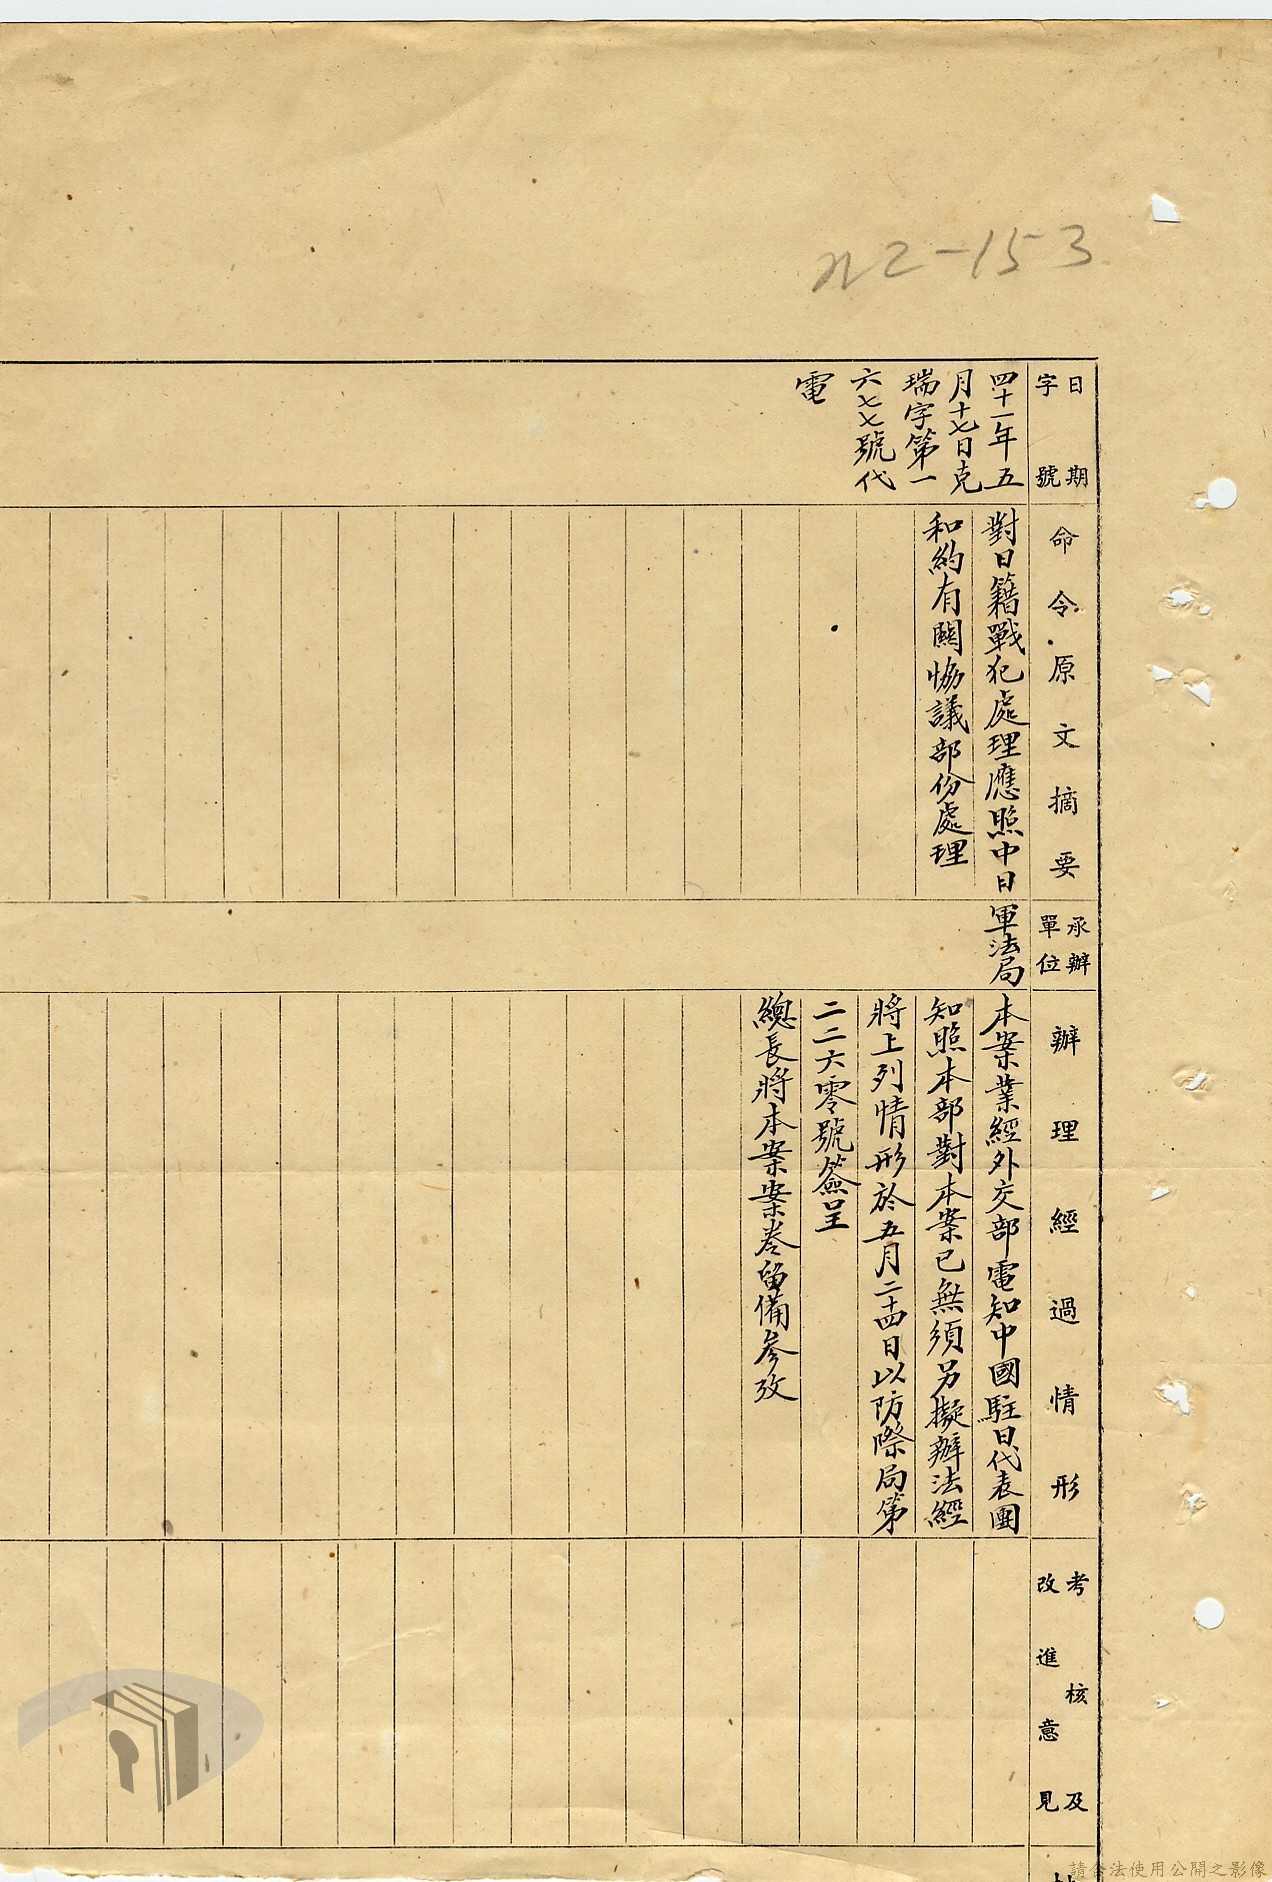 n2-153
日期
字號
四十一年五
月十七日克
瑞字第一
六七七號代
電
命令原文摘要
對日籍戰犯處理應照中日
和約有關協議部份處理
承辦
單位
軍法局
辦理經過情形
本案業經外交部電知中國駐日代表團
知照本部對本案已無須另擬辦法經
將上列情形於五月二十四日以防際局第
二二六零號簽呈
總長將本案案卷留備參攷
考核及
改進意見
請合法使用公開之影像